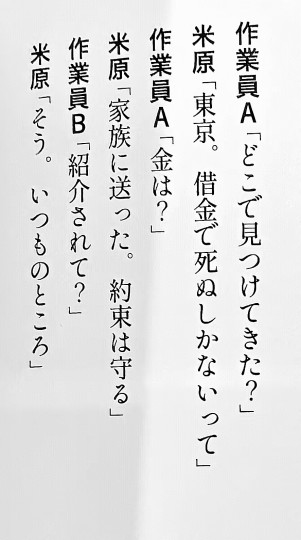 作業員A「どこで見つけてきた?」
米原「東京。借金で死ぬしかないって」
作業員A「金は?」
米原「家族に送った。約束は守る」
作業員B「紹介されて?」
米原「そう。いつものところ」